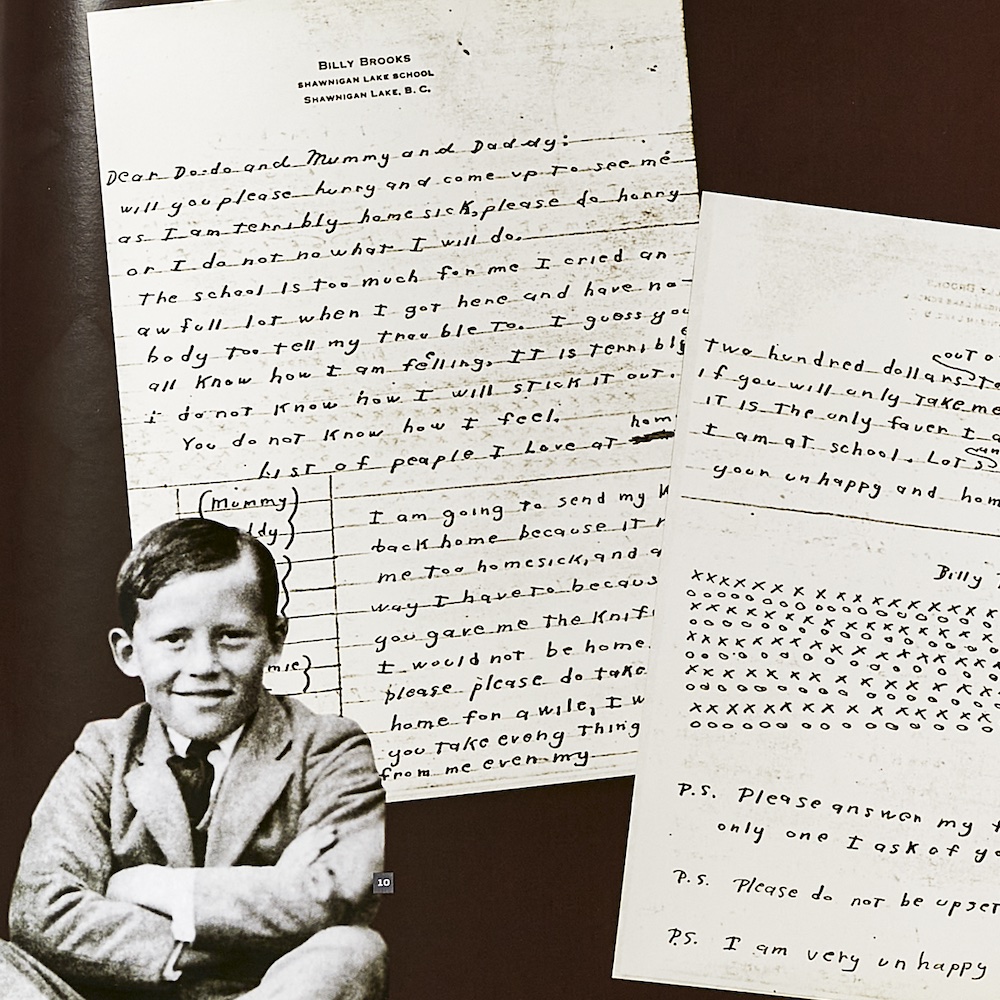 BILLY BROOKS
SHAWNIGAN LAKE SCHOOL
SHAWNIGAN LAKE, B. C.
Dear Do-do and Mummy and Daddy:
will you please hurry and come up to see me
as I am terribly home sick, please do horry
or I do not no what I will do.
The school Is too much for me I cried an
aw full lot when I got here and have no
body too tell my trouble to. I guess you
all know how I am felling. It is terrible
i do not know how I will stick it out.
You do not know how I feel.
List of peaple I Love at hom
(Mummy)
ddy)
mie)
I am going to send my
back home because it
me too homesick, and
way I have to becaus
you gave me the Knif
I would not be home.
please please do take
home for a wile, I w
you take eveng Thing
from me even my
10
BROOKS
out
Two hundred dollars
if you will only take me
IT Is The only faver I
I am at school. Lots
your unhappy and hom
Billy
xxxxxxxxxxxxxxxx
oooooooooooooooo
xxxxxxxxxxxxxxxx
oooooooooooooooo
xxxxxxxxxxxxxxxx
oooooooooooooooo
xxxxxxxxxxxxxxxx
oooooooooooooooo
xxxxxxxxxxxxxxxx
oooooooooooooooo
P.S. Please answer my
only one I ask of yo
P.S. Please do not be upset
P.S. I am very unhappy